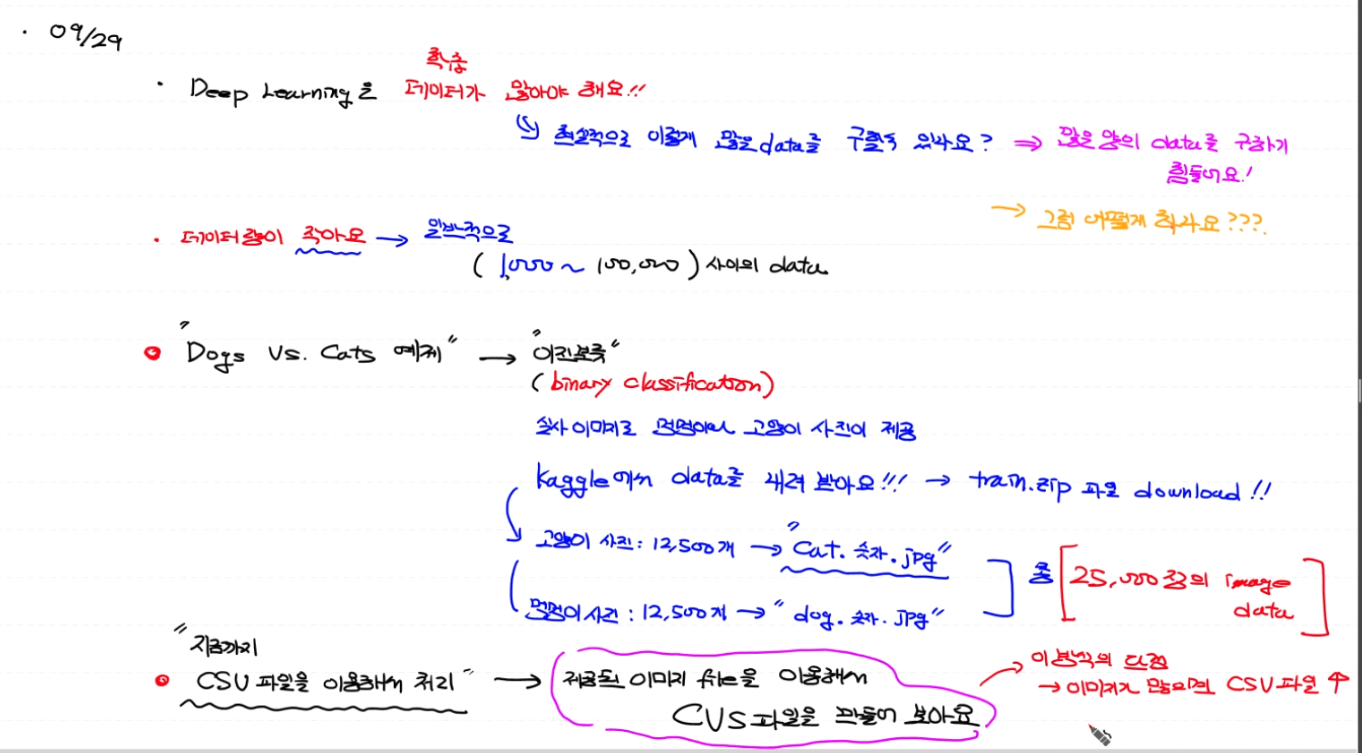 · 09/29
학습
· Deep Learning은 데이터가 많아야 해요!!
↳ 현실적으로 이렇게 많은 data를 구할수 있나요? ⇒ 많은 양의 data를 구하기
힘들어요!
→ 그럼 어떻게 하나요???
· 데이터량이 작아요 → 일반적으로
(1,000 ~ 100,000) 사이의 data
"Dogs vs. Cats 예제" → "이진분류"
(binary classification)
실사 이미지로 멍멍이와 고양이 사진이 제공
Kaggle에서 data를 내려 받아요!!! → train.zip 파일 download!!
고양이 사진: 12,500개 → "cat.숫자.jpg"
총 [25,000장의 image
data]
멍멍이사진: 12,500개 → "dog.숫자.jpg"
"지금까지
CSV 파일을 이용해서 처리" → 제공된 이미지 file을 이용해서
CVS파일을 만들어 보아요
이방식의 단점
→ 이미지가 많으면 CSV파일 ↑